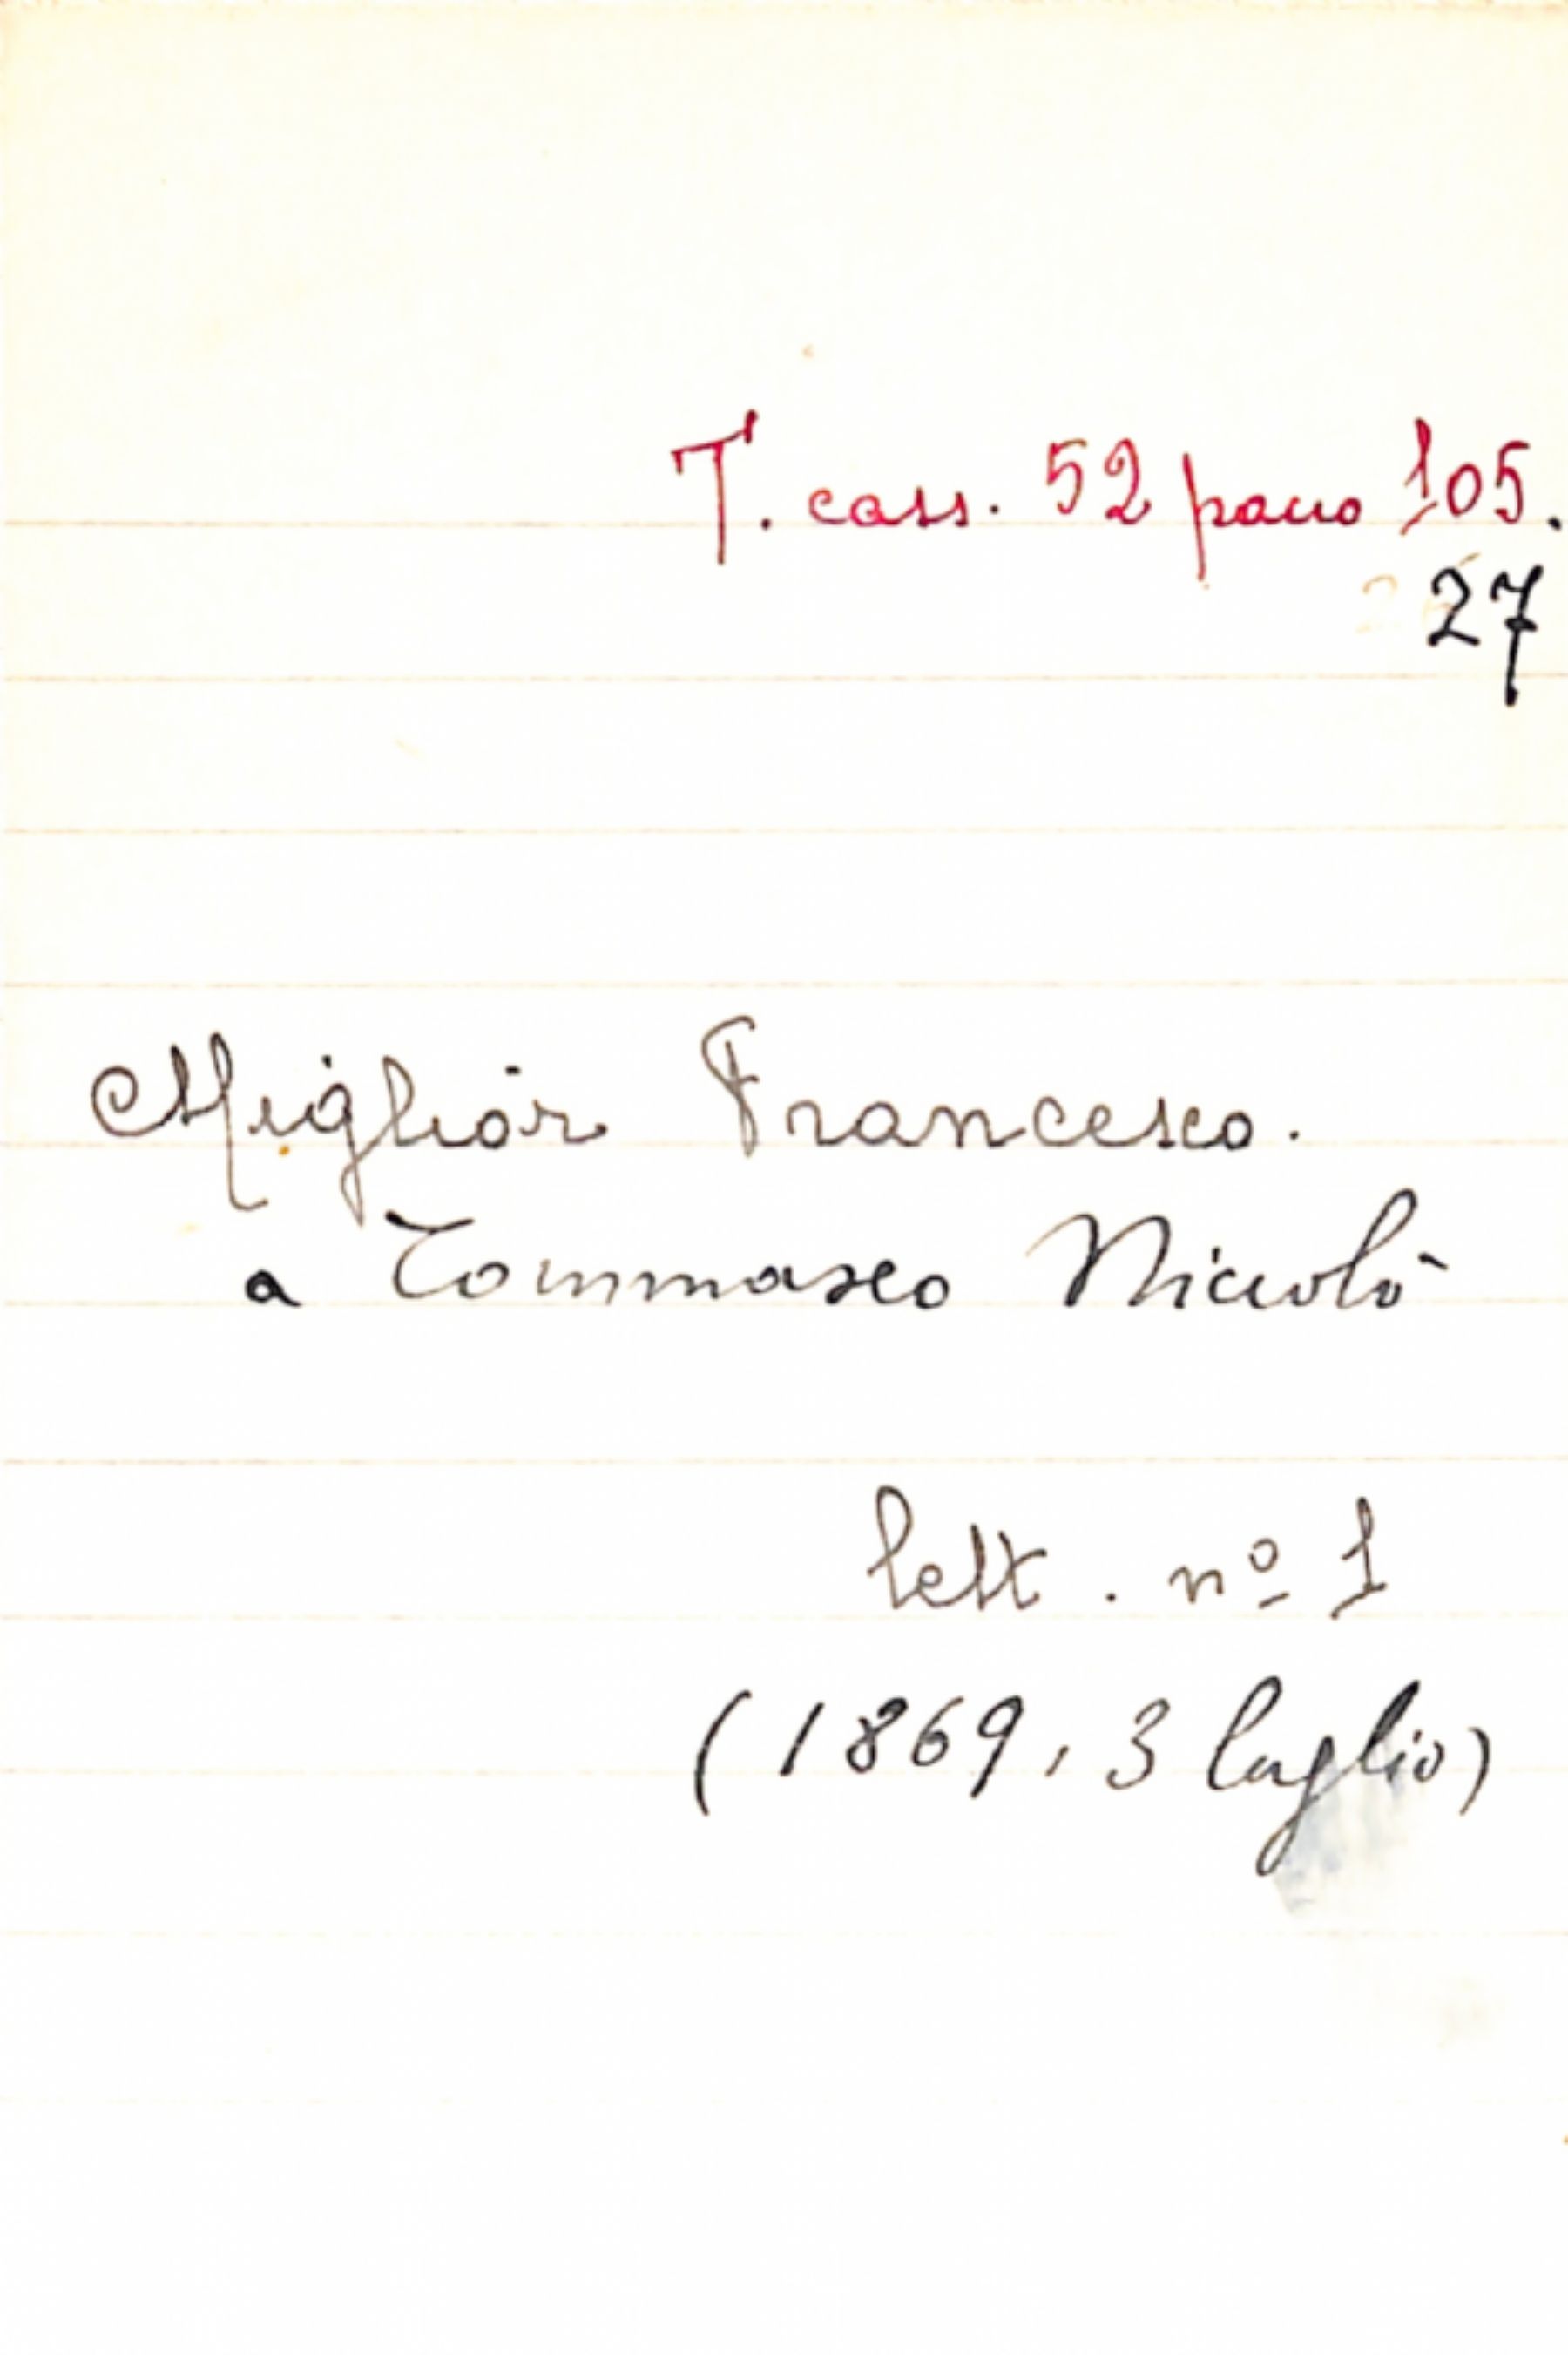 T. cass. 52 pacco 105.
27
Miglior Francesco.
a Tommaseo Niccolò
lett. nº 1
(1869, 3 luglio)